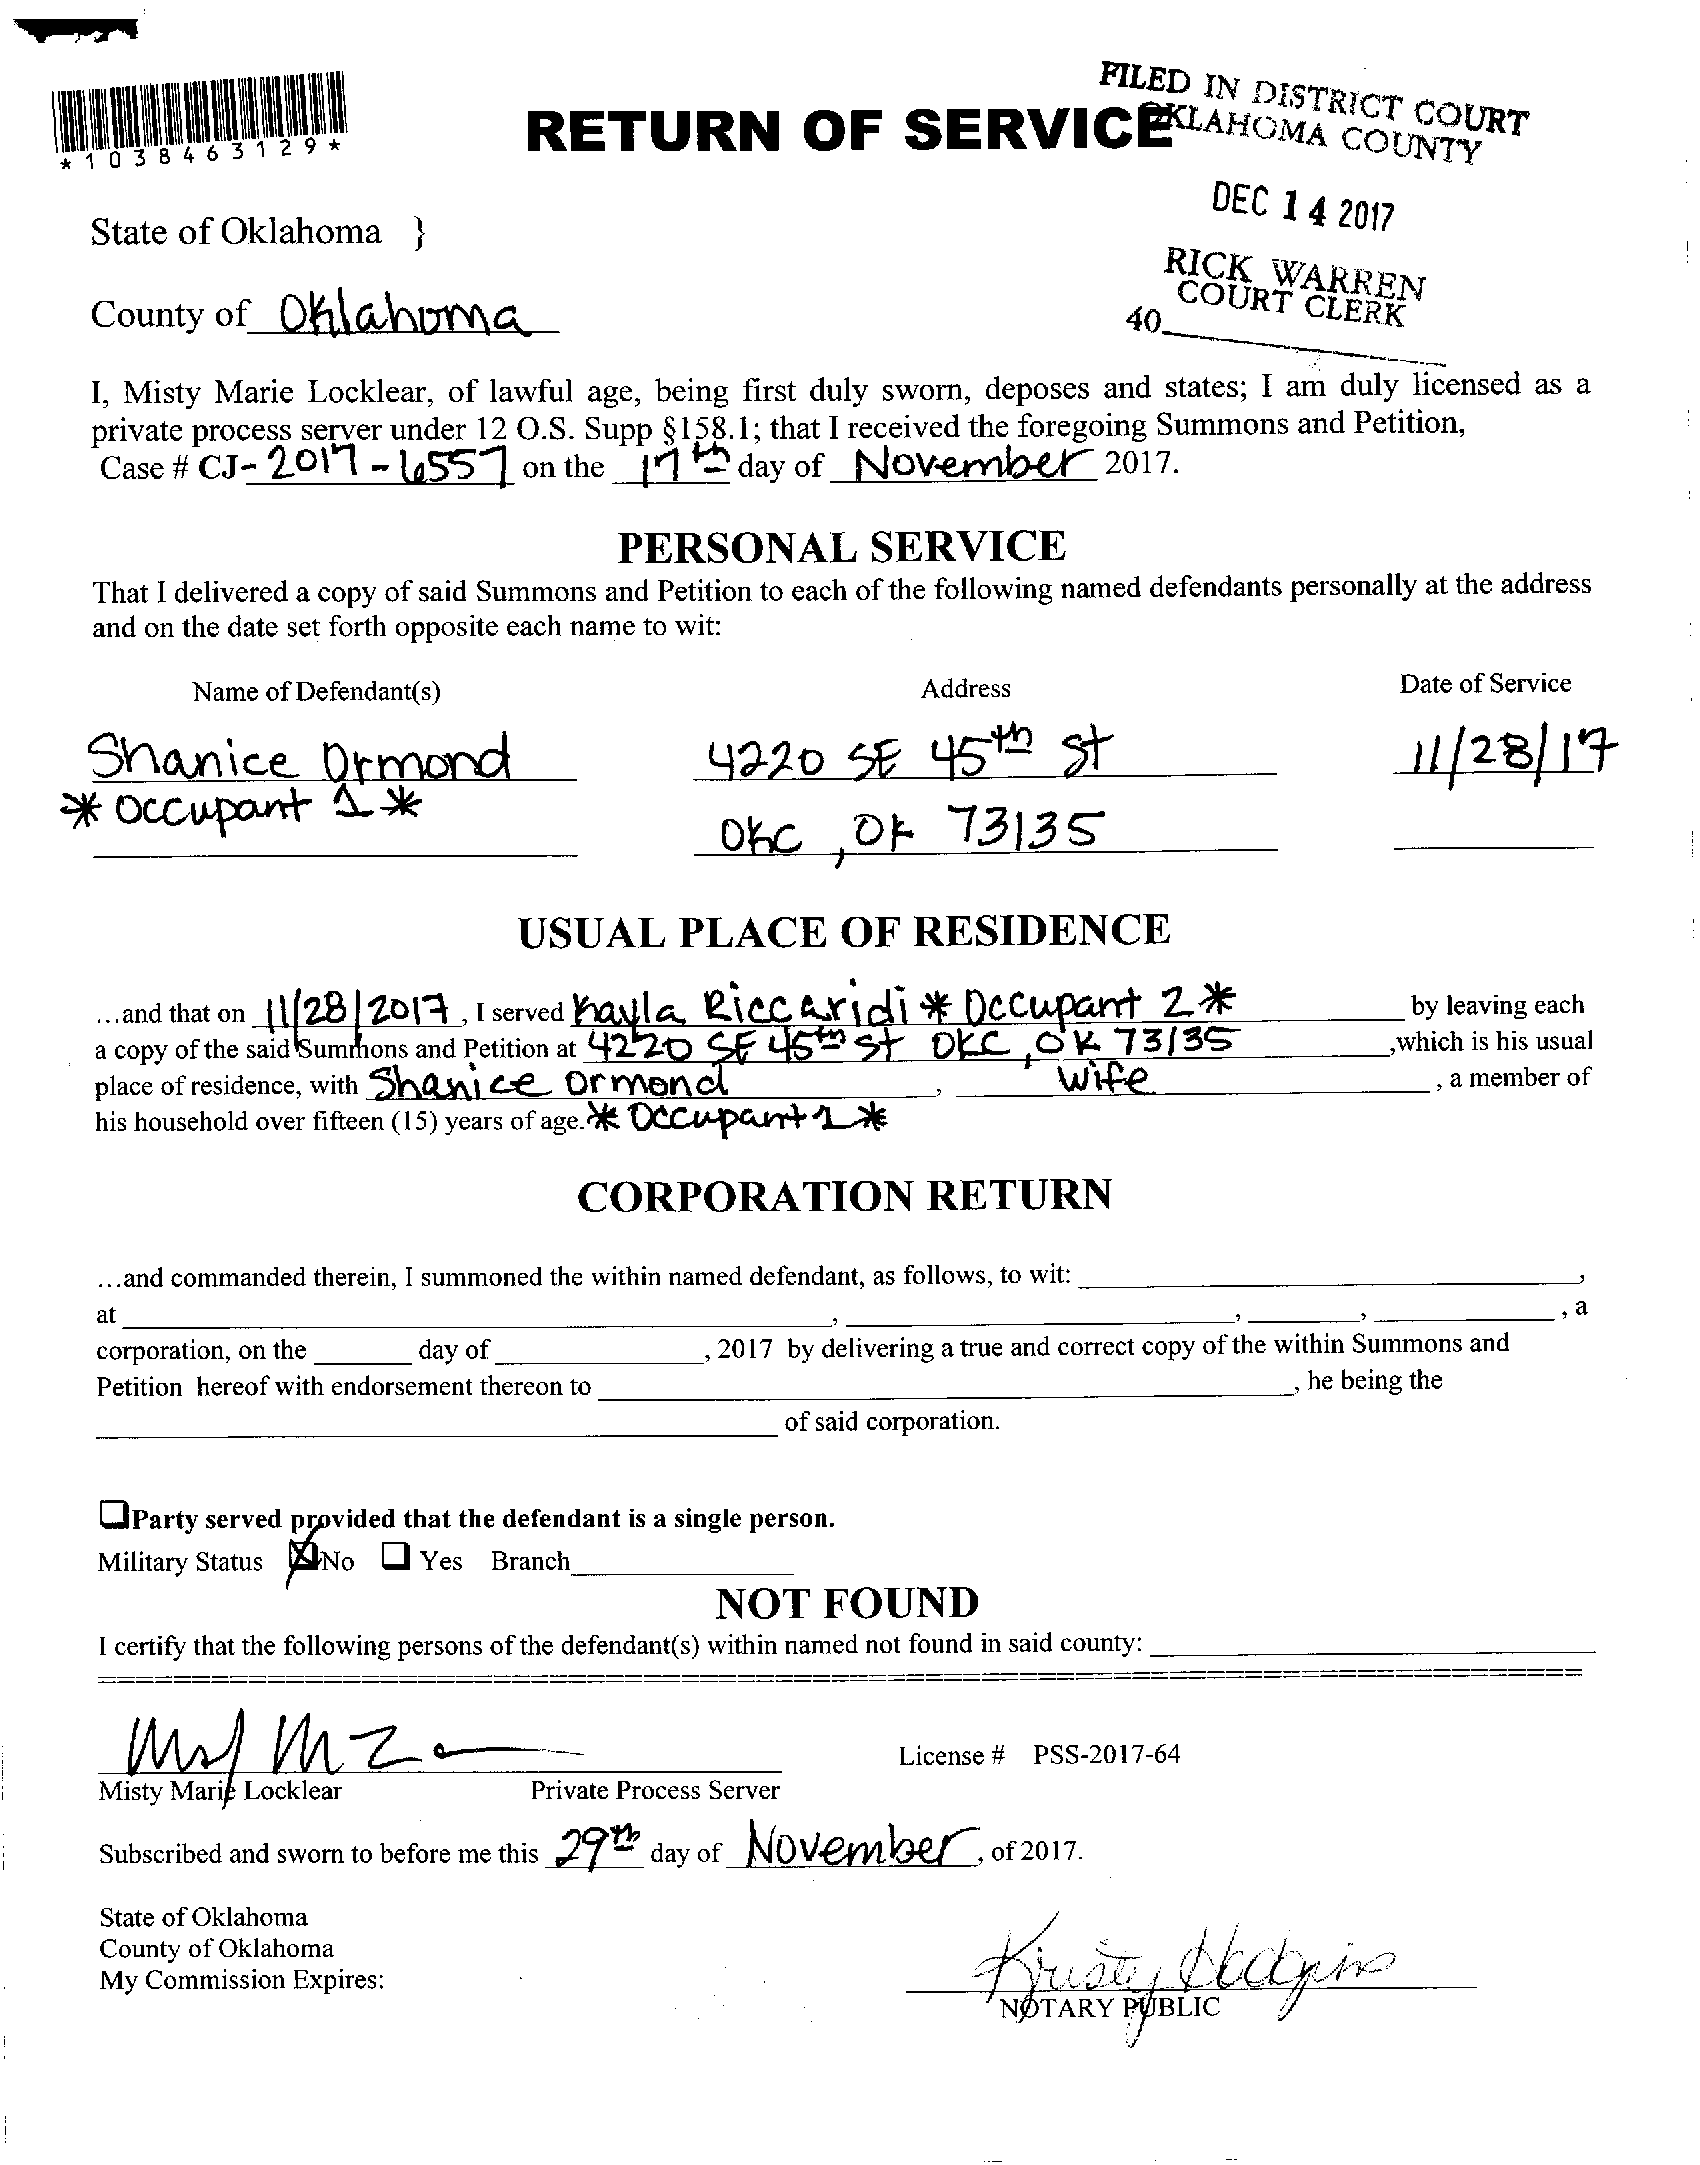 FILED IN DISTRICT COURT
OKLAHOMA COUNTY
*1038463129*
RETURN OF SERVICE
DEC 14 2017
State of Oklahoma }
RICK WARREN
COURT CLERK
County of Oklahoma
40
I, Misty Marie Locklear, of lawful age, being first duly sworn, deposes and states; I am duly licensed as a
private process server under 12 O.S. Supp §158.1; that I received the foregoing Summons and Petition,
Case # CJ- 2017 - 6557 on the 17th day of November 2017.
PERSONAL SERVICE
That I delivered a copy of said Summons and Petition to each of the following named defendants personally at the address
and on the date set forth opposite each name to wit:
Name of Defendant(s) Address Date of Service
Shanice Ormond 4220 SE 45th St 11/28/17
* Occupant 1 *
OKC, OK 73135
USUAL PLACE OF RESIDENCE
...and that on 11/28/2017, I served Kayla Riccaridi * Occupant 2 * by leaving each
a copy of the said Summons and Petition at 4220 SE 45th St OKC, OK 73135 ,which is his usual
place of residence, with Shanice Ormond , Wife , a member of
his household over fifteen (15) years of age. * Occupant 1 *
CORPORATION RETURN
...and commanded therein, I summoned the within named defendant, as follows, to wit: ,
at , , , , a
corporation, on the day of , 2017 by delivering a true and correct copy of the within Summons and
Petition hereof with endorsement thereon to , he being the
of said corporation.
Party served provided that the defendant is a single person.
Military Status No Yes Branch
NOT FOUND
I certify that the following persons of the defendant(s) within named not found in said county:
License # PSS-2017-64
Misty Marie Locklear Private Process Server
Subscribed and sworn to before me this 29th day of November, of 2017.
State of Oklahoma
County of Oklahoma
My Commission Expires:
Kristy Hodgins
NOTARY PUBLIC